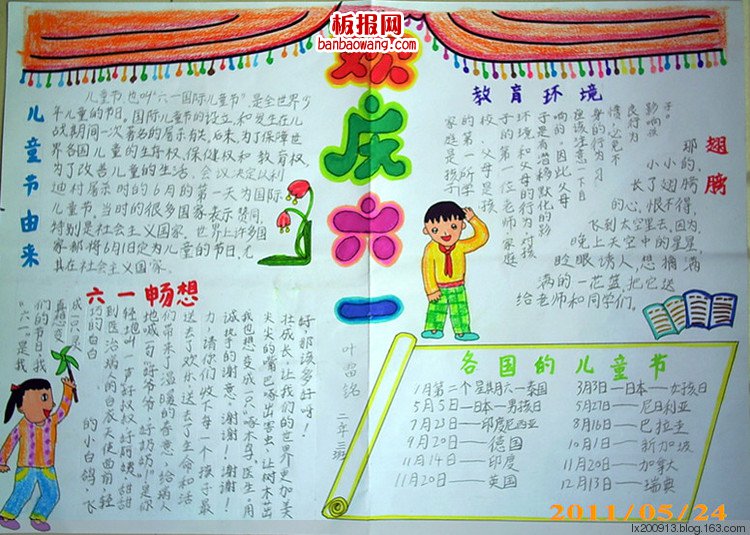 板报网
banbaowang.com
欢庆六一
儿童节由来
儿童节也叫“六一国际儿童节”,是全世界少
年儿童的节日。国际儿童节的设立,和发生在儿
战期间一次著名的屠杀有关。后来,为了保障世
界各国儿童的生存权、保健权和教育权
为了改善儿童的生活,会议决定以利
迪村屠杀时的6月的第一天为国际
儿童节。当时的很多国家表示赞同,
特别是社会主义国家。世界上许多国
家都将6月1日定为儿童的节日,尤
其在社会主义国家。
教育环境
影响孩子。
良行为
惯,避免不
身的行为习
应该注意一下自
响的。因此父母
子是有潜移默化的影
环境和父母的行为对孩
子的第一位老师,家庭
权,父母是孩
的第一所学
家庭是孩子
翅膀
那
小小的,
长了翅膀
的心,恨不得,
飞到太空里去,因为,
晚上天空中的星星,
眨眼诱人,想摘满
满的一花篮,把它送
给老师和同学们。
六一畅想
“六一”是我
们的节日,我
真想变
成一只灵
巧的白
的小白鸽,飞
到医治病人的白衣天使面前,轻
轻道叫一声好叔叔、好阿姨,甜甜
地喊一句好爷爷、好奶奶,是你
们带来了温暖的春意,给病人
送去了欢乐,送去了生命和活
力。请你们收下每一个孩子最
诚挚的谢意,谢谢!谢谢!
我也想变成一只啄木鸟,医生用
尖尖的嘴巴啄出害虫,让树木茁
壮成长,让我们的世界更加美
好,那该多好呀!
叶思铭
二年三班
各国的儿童节
1月第二个星期六—泰国 3月3日—日本—女孩日
5月5日—日本—男孩日 5月27日—尼日利亚
7月23日—印度尼西亚 8月16日—巴拉圭
9月20日—德国 10月1日—新加坡
11月14日—印度 11月20日—加拿大
11月20日—英国 12月13日—瑞典
2011/05/24
lx200913.blog.163.com